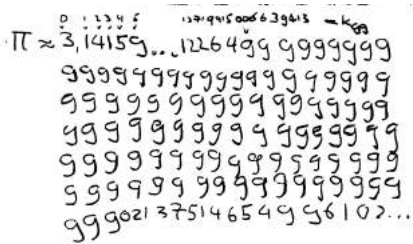 0 1 2 3 4 5 12719415006639413 — K99
π ≈ 3,14159...1226499 9999999
9999999999999999999
999999999999999999
999999999999999999
999999999999999999
999999 999999999999
99902137514654996102...